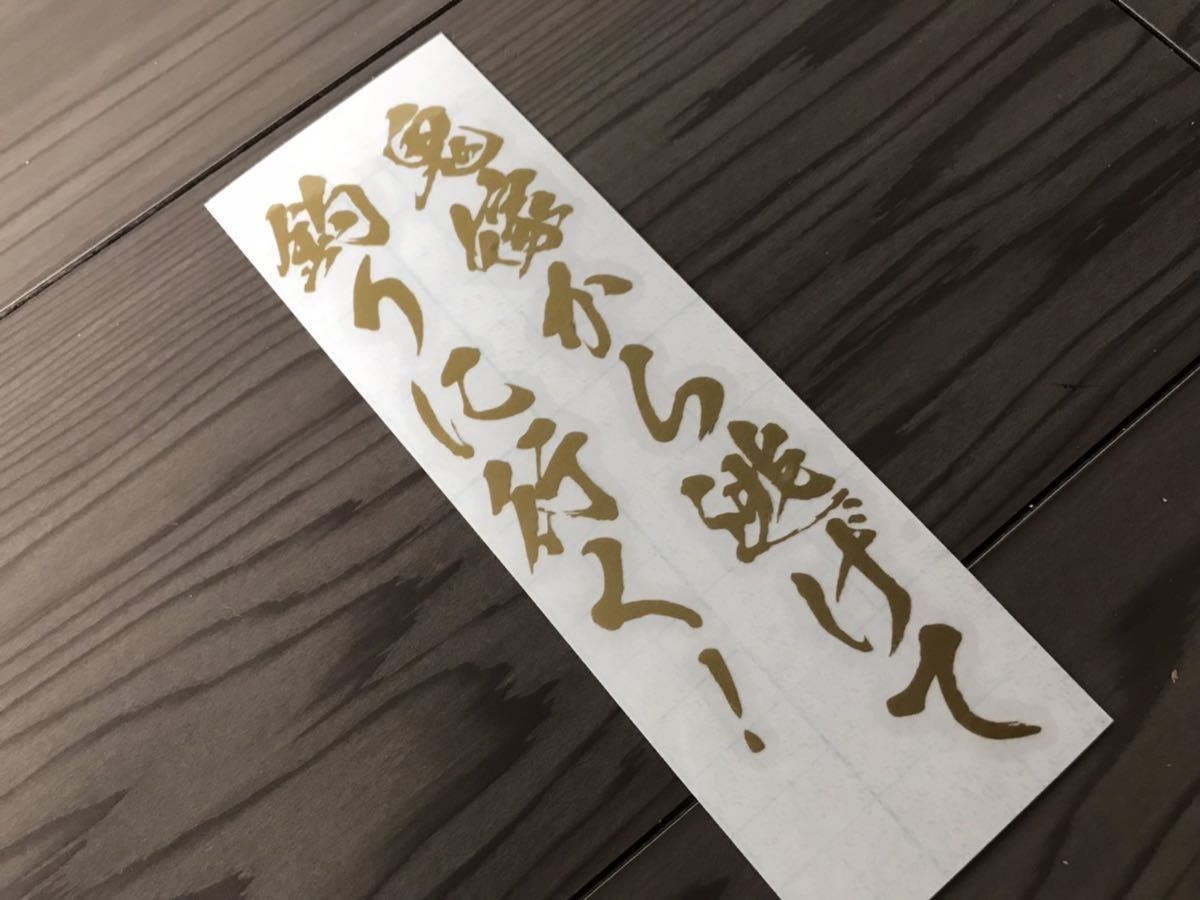 鬼嫁から逃げて
釣りに行く!